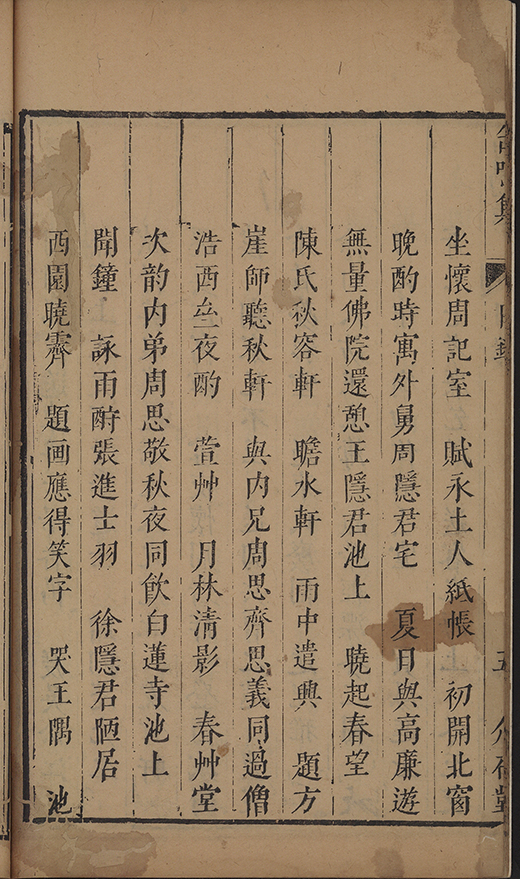 坐懷周記室　賦永土人紙帳　初開北窗
晚酌時寓外舅周隱君宅　夏日與高廉遊
無量佛院還憩王隱君池上　曉起春望
陳氏秋容軒　瞻水軒　雨中遣興　題方
崖師聽秋軒　與內兄周思齊思義同過僧
浩西㘴夜酌　萱艸　月林清影　春艸堂
次韵內弟周思敬秋夜同飲白蓮寺池上
聞鐘　詠雨酧張進士羽　徐隱君陋居
西園曉霽　題画應得笑字　哭王隅　池